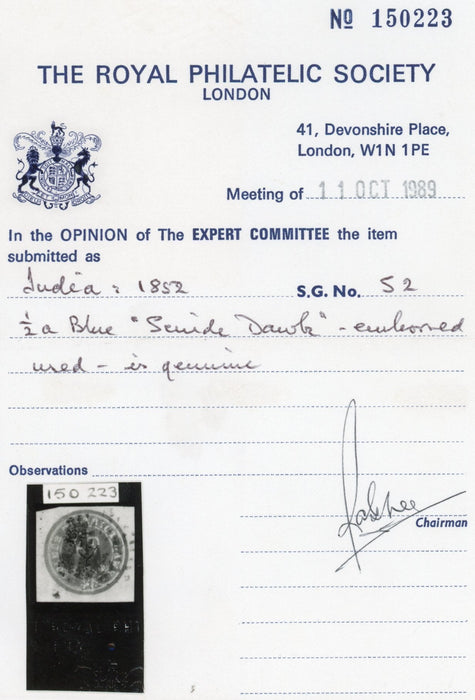 No 150223
THE ROYAL PHILATELIC SOCIETY
LONDON
41, Devonshire Place,
London, W1N 1PE
Meeting of 11 OCT 1989
In the OPINION of The EXPERT COMMITTEE the item
submitted as
India: 1852 S.G. No. S2
½a Blue "Scinde Dawk" - embossed
used - is genuine
Observations
150 223
Chairman